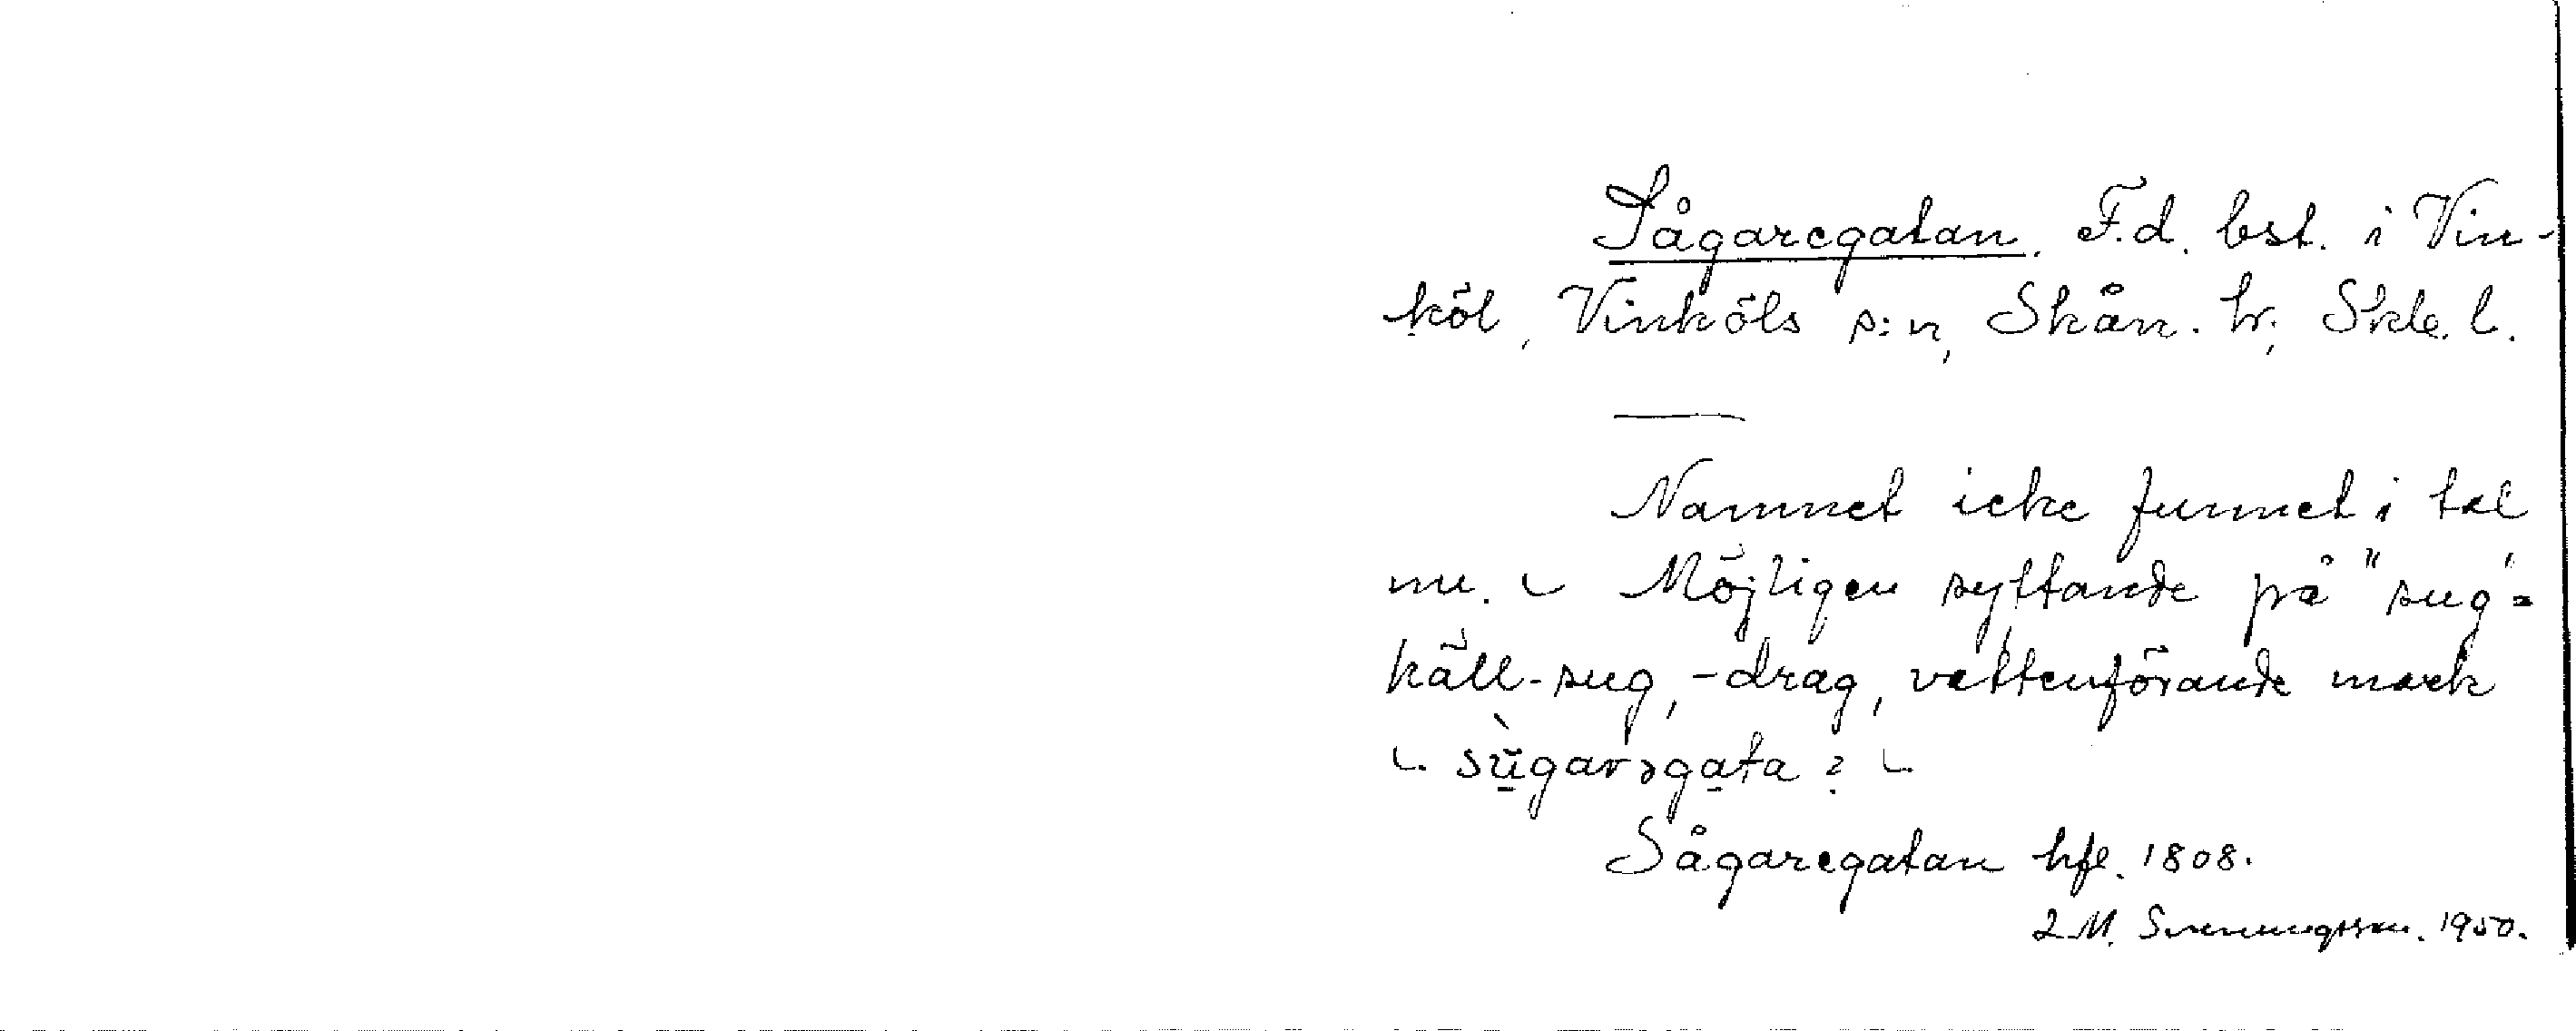 Sågaregatan. F.d. bst. i Vin-
köl, Vinköls s:n, Skån. hr, Skle. l.
Namnet icke funnet i tal
nu. Möjligen syftande på "sug"=
käll-sug, -drag, vattenförande mark
sùgarəgata?
Sågaregatan hfl. 1808.
L M. Svenungsson. 1950.